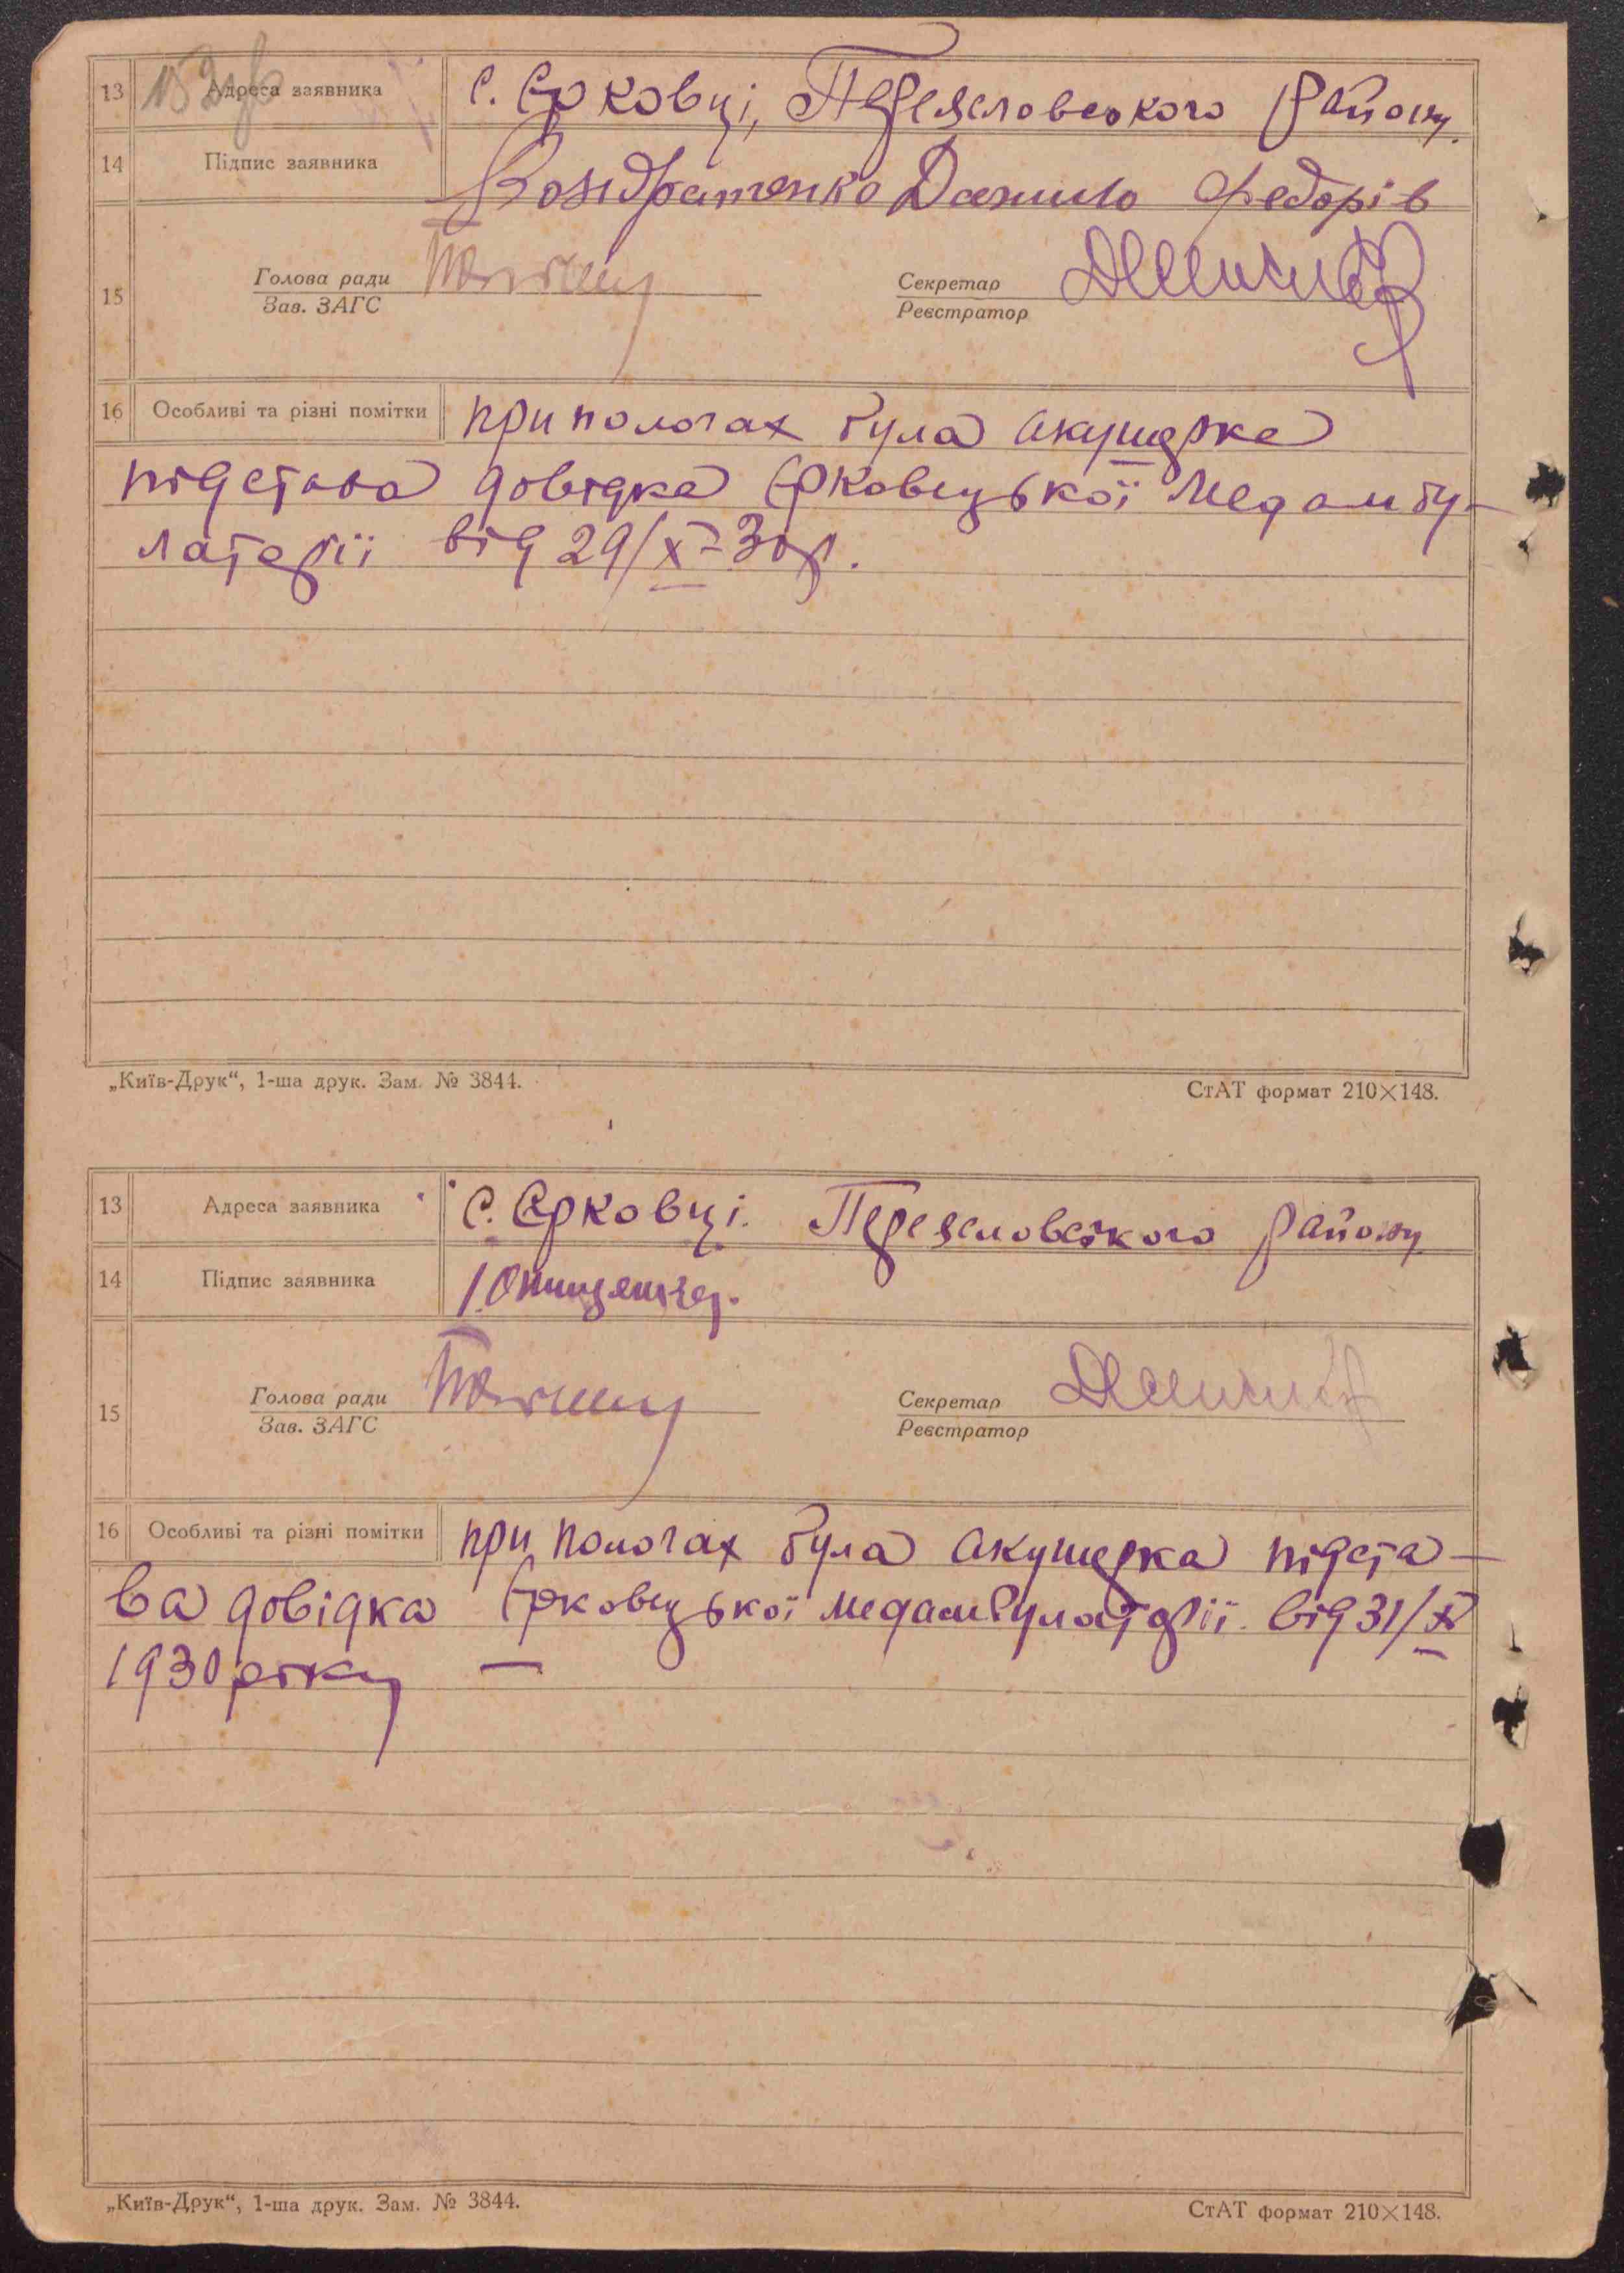 13 Адреса заявника с. Єрковці, Переяславського району.
14 Підпис заявника Кондратенко Данило Федорів
15 Голова ради Секретар
Зав. ЗАГС Реєстратор
16 Особливі та різні помітки при пологах була акушерка
підстава довідка Єрковецької медамбу-
латорії від 29/X-30р.
„Київ-Друк“, 1-ша друк. Зам. № 3844. СтАТ формат 210×148.
13 Адреса заявника с. Єрковці. Переяславського району
14 Підпис заявника
15 Голова ради Секретар
Зав. ЗАГС Реєстратор
16 Особливі та різні помітки при пологах була акушерка підста-
ва довідка Єрковецької медамбулаторії від 31/X
1930 року —
„Київ-Друк“, 1-ша друк. Зам. № 3844. СтАТ формат 210×148.